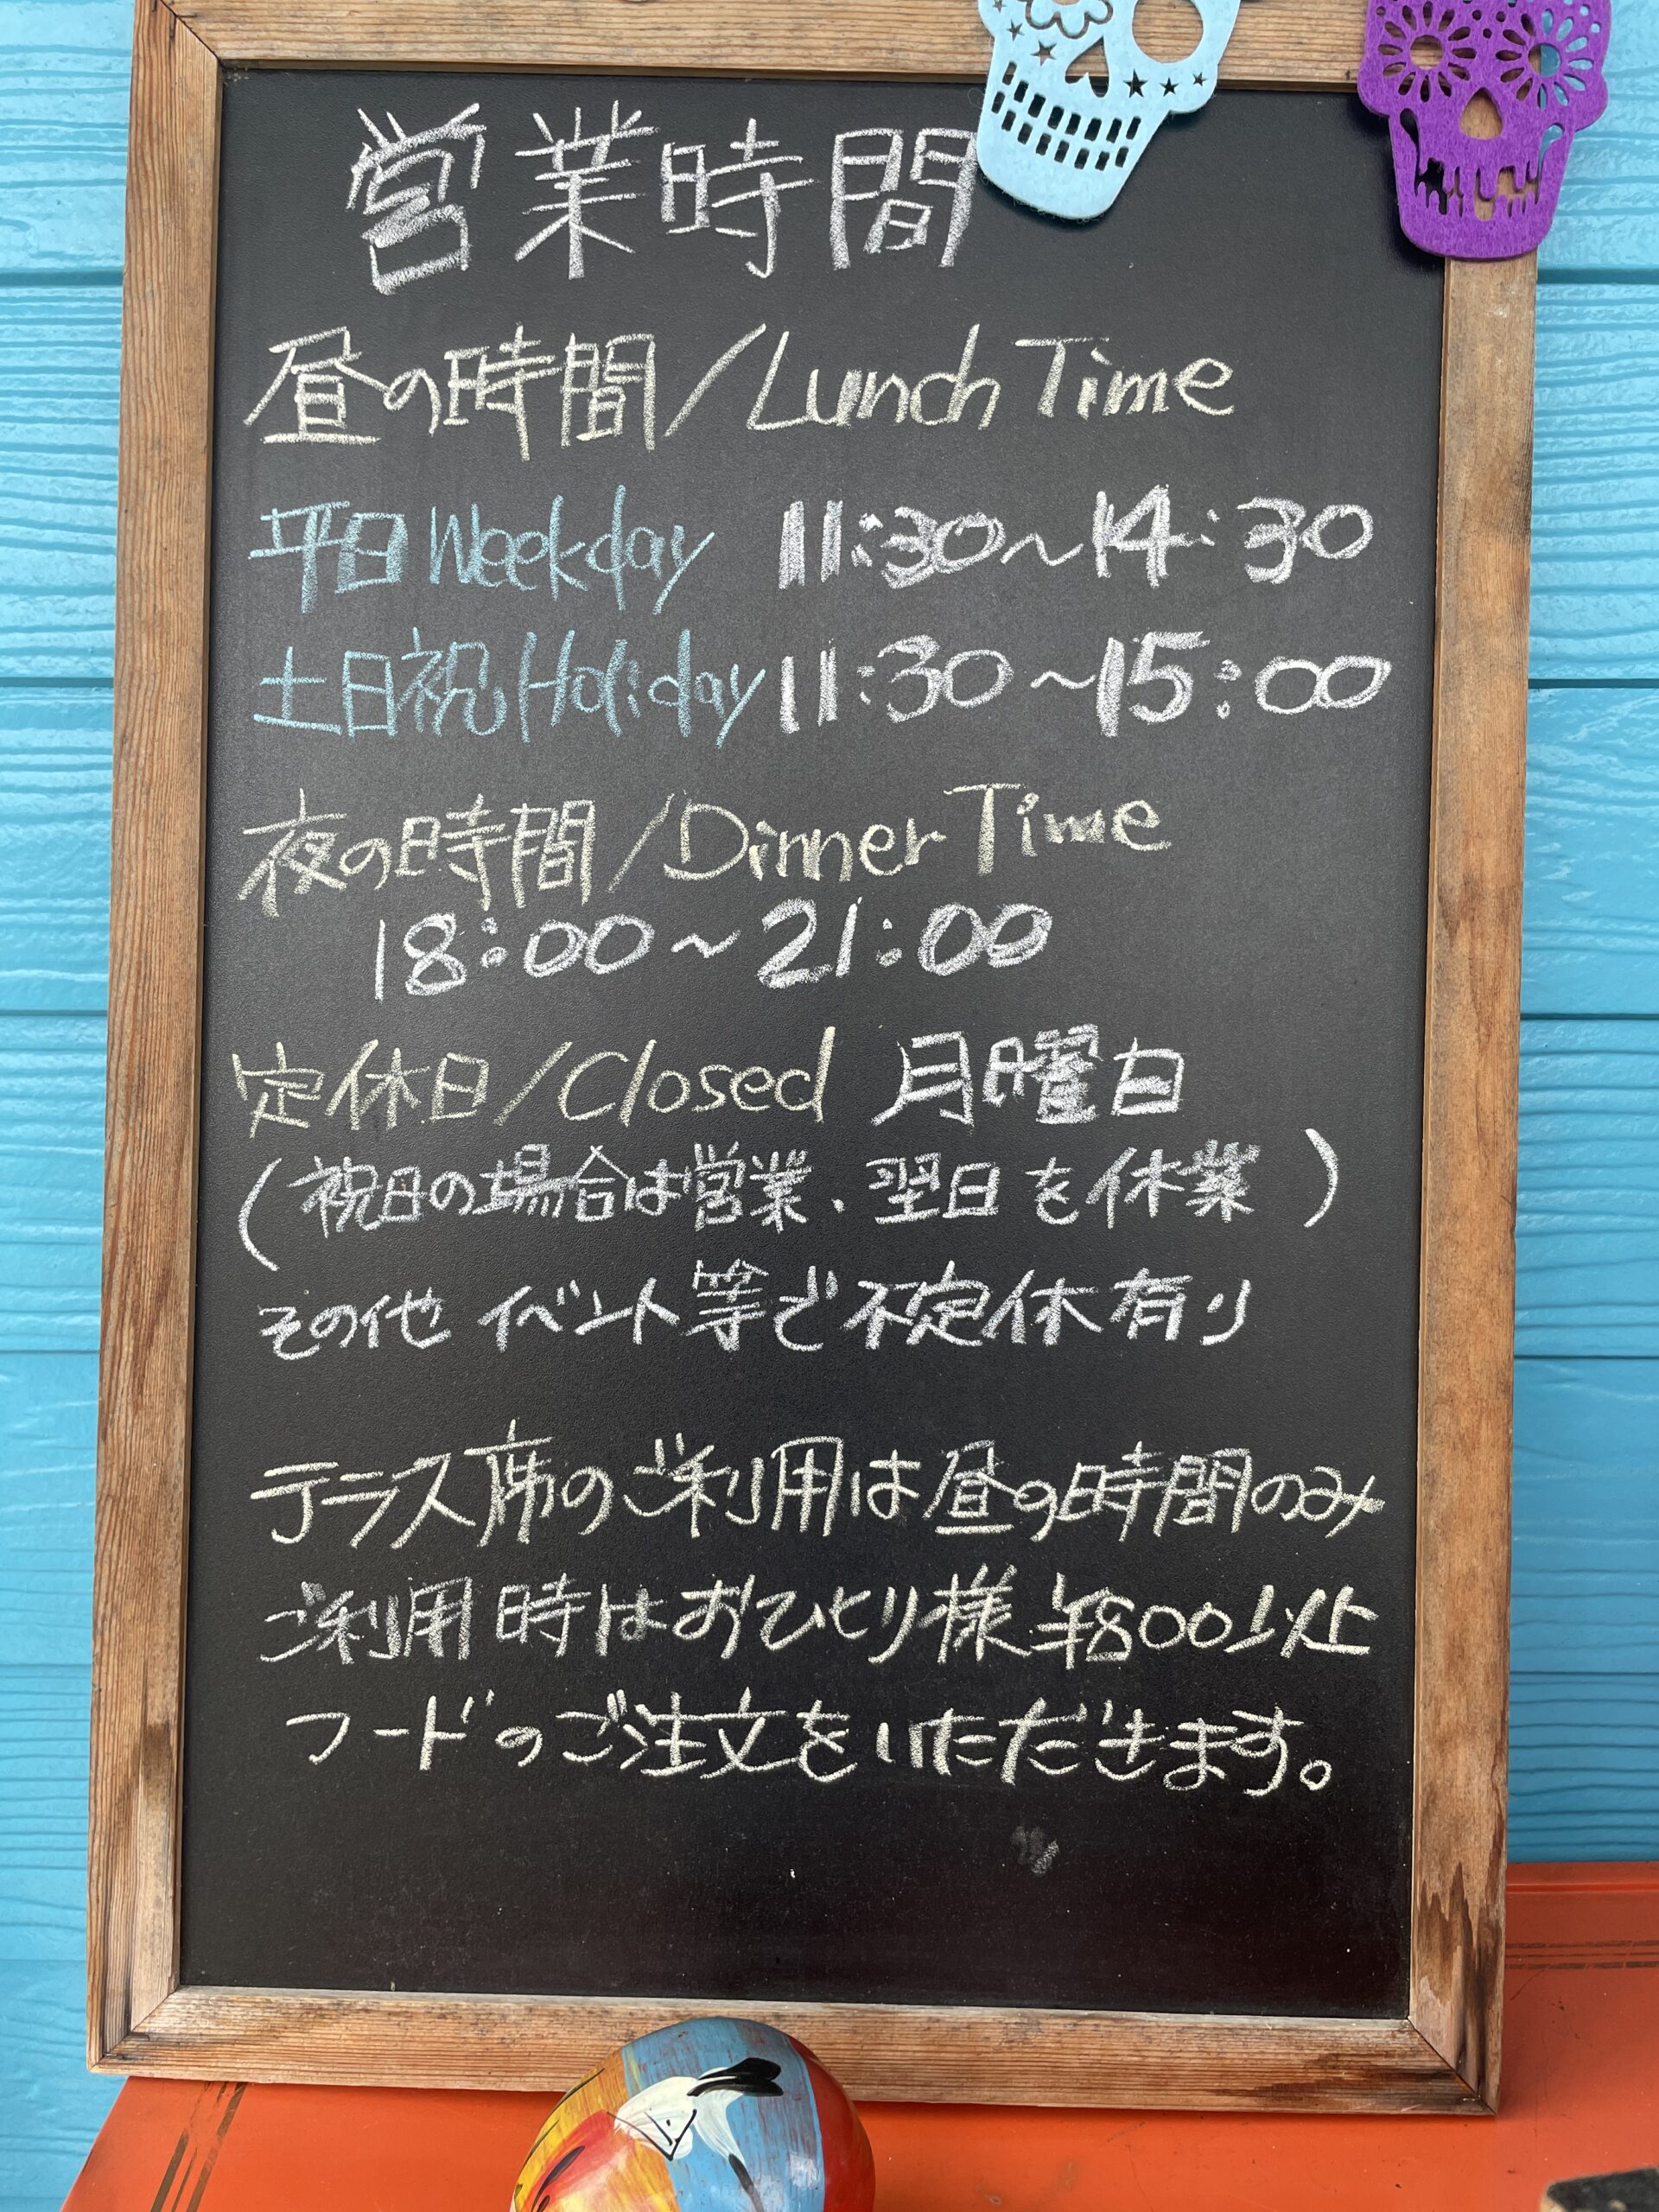 営業時間
昼の時間/Lunch Time
平日Weekday 11:30~14:30
土日祝Holiday 11:30~15:00
夜の時間/Dinner Time
18:00~21:00
定休日/Closed 月曜日
(祝日の場合は営業、翌日を休業)
その他 イベント等で不定休有り
テラス席のご利用は昼の時間のみ
ご利用時はおひとり様¥800以上
フードのご注文をいただきます。